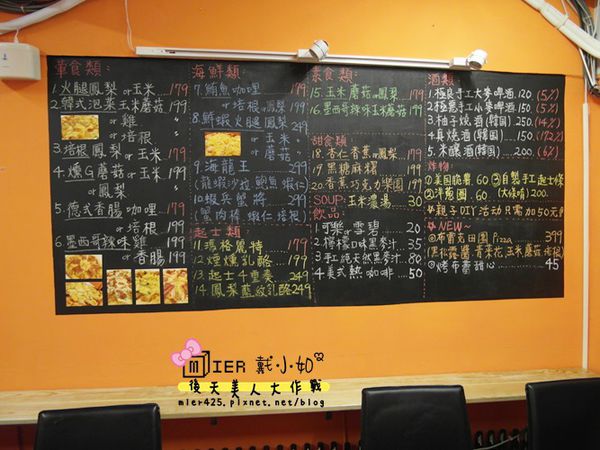 葷食類:
1.火腿鳳梨 or 玉米...179
2.韓式泡菜玉米蘑菇 199
or 雞 "
or 培根 "
3.培根鳳梨 or 玉米 179
4.燻G蘑菇 or 玉米 179
or鳳梨
5.德式香腸咖哩...179
or培根...199
6.墨西哥辣味雞 199
or香腸 199
海鮮類:
7.鮪魚咖哩...199
or培根 or鳳梨 199
8.鮮蝦火腿鳳梨 199
or玉米 "
or蘑菇 "
9.海龍王...249
(龍蝦沙拉 鮑魚 蝦仁)
10.蝦兵蟹將...249
(蟹肉棒 蝦仁 培根)
起士類:
11.瑪格麗特...179
12.煙燻乳酪...199
13.起士4重奏...249
14.鳳梨藍紋乳酪249
素食類:
15.玉米蘑菇 or鳳梨 179
16.墨西哥辣味玉米蘑菇 199
甜食類:
18.杏仁香蕉 or鳳梨 179
19.黑糖麻糬...199
20.香蕉巧克力樂園 199
SOUP:玉米濃湯...30
飲品:
1.可樂 or 雪碧...20
2.檸檬口味黑麥汁...35
3.手工純天然黑麥汁..80
4.美式熱咖啡...50
酒類:
1.極良手工大麥啤酒.120.(5%)
2.極黑手工小麥啤酒.150.(5%)
3.柚子燒酒(韓国).250.(14%)
4.真燒酒(韓国)...150.(19.2%)
5.米釀酒(韓国)...200.(6%)
炸物:
①美国脆薯.60 ③自製手工起士條
②洋蔥圈.60 (大條唷) 200.
親子DIY活动只需加50元
~NEW~
布雷克田園Pizza...399
(黑松露醬.青菜花.玉米.蘑菇.培根)
烤布蕾甜心...45
mIER 戴小如
後天美人大作戰
mier425.pixnet.net/blog